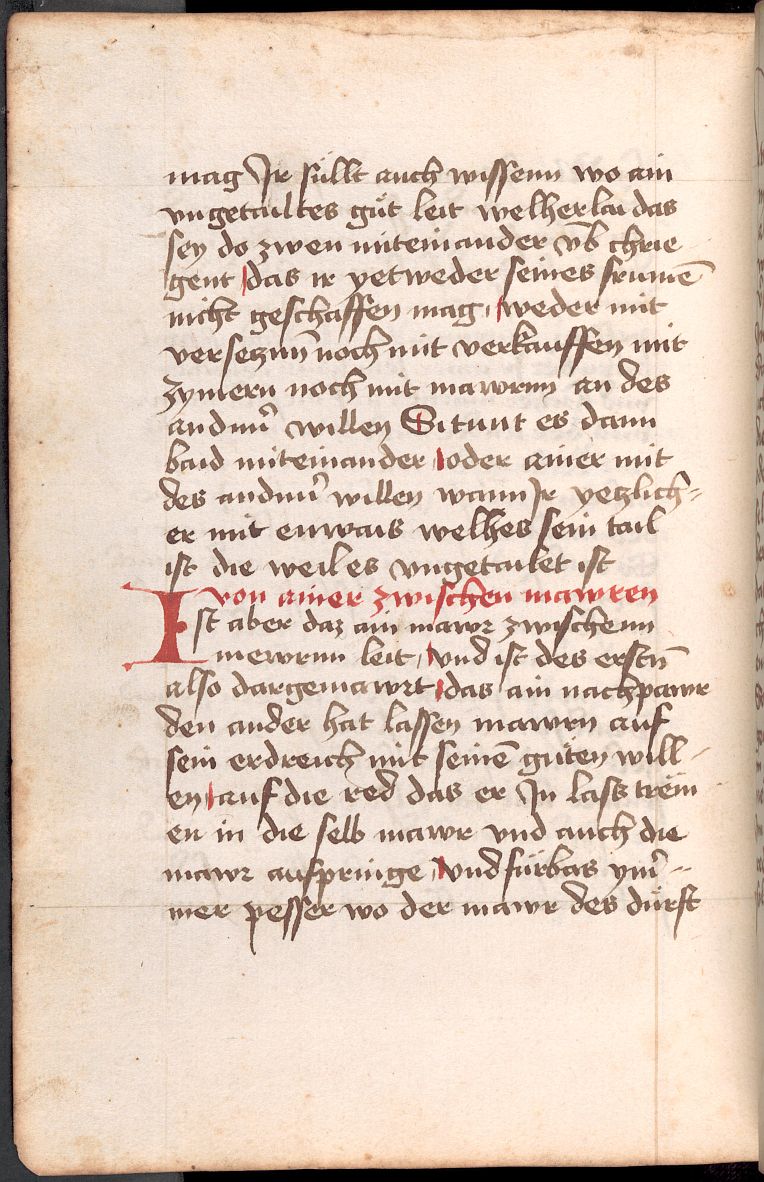 mag Ir süllt auch wissenn wo ain
vngetailtes güt leit welherlai das
sey do zwen miteinander vb chrie
gent das ir yetweder seines frumē
nicht geschaffen mag weder mit
versetzn̄ noch mit verkauffen mit
zymern noch mit mawrnn an des
willen Si tunt es dann
baid miteinander oder ainer mit
des willen wann Ir yetzlich=
er mit enwais welhes sein tail
ist die weil es vngetailet ist
von ainer zwischen mawren
Ist aber daz ain mawr zwischenn
mewrnn leit vnd ist des erstn̄
also dargemawrt das ain nachpawr
den ander hat lassen mawrn auf
sein erdreich mit seinē güten will
en auf die red das er In lass träm
en in die selb mawr vnd auch die
mawr aufpringe vnd fürbas ym̄=
mer pesser wo der mawr des dürft